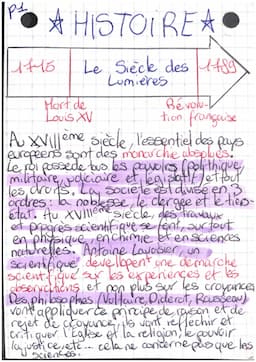 P1
★ HISTOIRE ★
1715 Le Siècle des Lumières 1789
Mort de Louis XV
Révolu-
tion française
Au XVIIIème siècle, l'essentiel des pays
européens sont des monarchie absolues.
Le roi possède tous les pouvoirs (politique,
militaire, judiciaire et législatif) et tout
les droits. La société est divisé en 3
ordres: la noblesse, le clergée et le tiers-
état. Au XVIIIème siècle, des travaux
et progrès scientifique se font, surtout
en physique, en chimie et en sciences
naturelles. Antoine Lavoisier, un
scientifique développent une démarche
scientifique sur les expériences et les
observations et non plus sur les croyances.
Des philosophes (Voltaire, Diderot, Rousseau)
vont appliquer ce principe de raison et de
rejet de croyance, ils vont réfléchir et
critiquer l'Eglise et la religion, le pouvoir
la justice, etc... cela ne concerne pas que les
sciences.